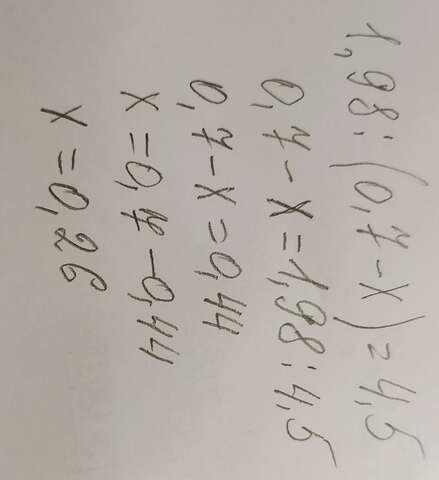 1,98:(0,7-x)=4,5
0,7-x=1,98:4,5
0,7-x=0,44
x=0,7-0,44
x=0,26